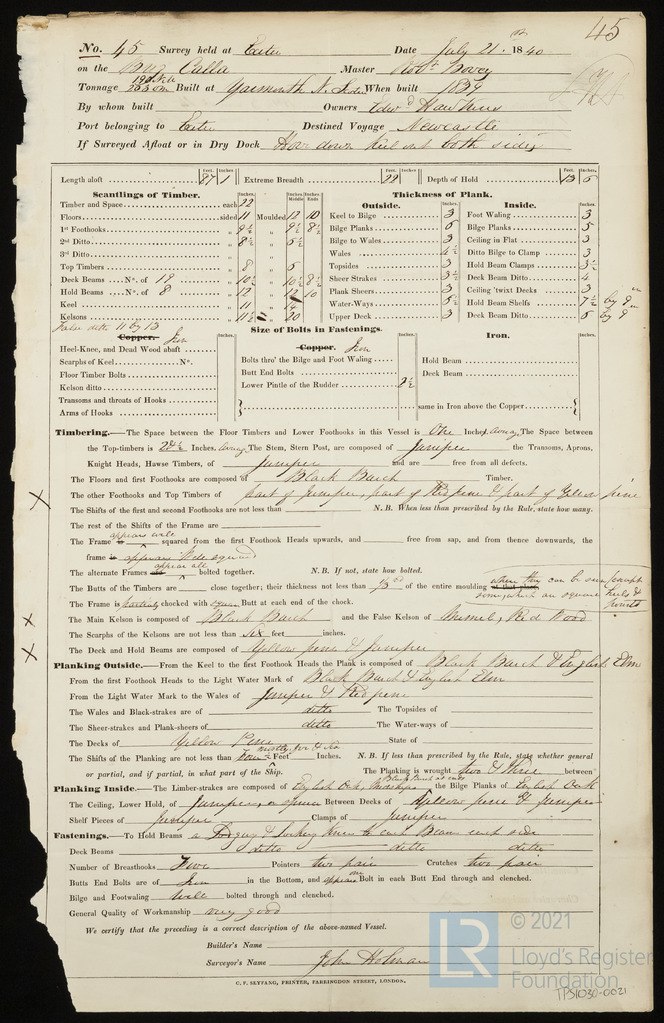 45
No. 45 Survey held at Exeter Date July 21st 1840
on the Brig Culla Master Robt. Bovey
Tonnage Built at Yarmouth N. When built 1839
By whom built Owners Edwd. Hawkins
Port belonging to Exeter Destined Voyage Newcastle
If Surveyed Afloat or in Dry Dock Hove down keel out both sides
Feet. Inches. Feet. Inches. Feet. Inches.
Length aloft 87 1 Extreme Breadth 22 Depth of Hold 13 5
Scantlings of Timber. Thickness of Plank.
Inches. Inches. Middle Inches. Ends Outside. Inches. Inside. Inches.
Timber and Space each 22 Keel to Bilge 3 Foot Waling 3
Floors sided 11 Moulded 12 10 Bilge Planks Bilge Planks 5
1st Foothooks „ 9½ „ 9½ 8½ Bilge to Wales 3 Ceiling in Flat 3
2nd Ditto „ 8½ „ 6½ Wales 4½ Ditto Bilge to Clamp 3
3rd Ditto „ „ Topsides 3 Hold Beam Clamps 3½
Top Timbers „ 8 „ 5 Sheer Strakes 3½ Deck Beam Ditto 4
Deck Beams No. of 19 „ 10½ „ 10½ 8½ Plank Sheers 3 Ceiling 'twixt Decks 3
Hold Beams No. of 8 „ 12 „ 12 10 Water-Ways 5½ Hold Beam Shelfs 7½ by 9 in
Keel „ 11 „ 14 Upper Deck 3 Deck Beam Ditto 6 by 9
Kelsons „ 11½ „ 20
False ditto 11 by 13
Size of Bolts in Fastenings.
Copper. Iron Inches. Copper. Iron Inches. Iron. Inches.
Heel-Knee, and Dead Wood abaft Bolts thro' the Bilge and Foot Waling Hold Beam
Scarphs of Keel No. Butt End Bolts Deck Beam
Floor Timber Bolts Lower Pintle of the Rudder 2½
Kelson ditto
Transoms and throats of Hooks same in Iron above the Copper
Arms of Hooks
Timbering.—The Space between the Floor Timbers and Lower Foothooks in this Vessel is One Inches. Away The Space between
the Top-timbers is 2½ Inches. Away The Stem, Stern Post, are composed of Juniper the Transoms, Aprons,
Knight Heads, Hawse Timbers, of Juniper and are free from all defects.
The Floors and first Foothooks are composed of Black Birch Timber.
The other Foothooks and Top Timbers of part of Juniper, part of Red pine & part of Yellow pine
The Shifts of the first and second Foothooks are not less than N. B. When less than prescribed by the Rule, state how many.
The rest of the Shifts of the Frame are
The Frame is appears well squared from the first Footheads upwards, and free from sap, and from thence downwards, the
frame is appears Well squared
The alternate Frames are appear all bolted together. N. B. If not, state how bolted.
The Butts of the Timbers are close together; their thickness not less than 1/3rd of the entire moulding where they can be seen
some which are square
The Frame is partially chocked with square Butt at each end of the chock.
The Main Kelson is composed of Black Birch and the False Kelson of Memel, Red Wood
The Scarphs of the Kelsons are not less than Six feet inches.
The Deck and Hold Beams are composed of Yellow pine & Juniper
Planking Outside.—From the Keel to the first Footheads the Plank is composed of Black Birch & English Elm
From the first Footheads to the Light Water Mark of Black Birch & English Elm
From the Light Water Mark to the Wales of Juniper & Red pine
The Wales and Black-strakes are of ditto The Topsides of
The Sheer-strakes and Plank-sheers of ditto The Water-ways of
The Decks of Yellow Pine State of
The Shifts of the Planking are not less than Four Feet mostly five & six Inches. N. B. If less than prescribed by the Rule, state whether general
or partial, and if partial, in what part of the Ship. The Planking is wrought two & three between
Planking Inside.—The Limber-strakes are composed of English Oak, Midships Black Birch at ends the Bilge Planks of English Oak
The Ceiling, Lower Hold, of Juniper, & Spruce Between Decks of Yellow pine & Juniper
Shelf Pieces of Juniper Clamps of Juniper
Fastenings.—To Hold Beams a Dodging & hanging knees to each Beam each side
Deck Beams ditto ditto ditto
Number of Breasthooks Five Pointers two pair Crutches two pair
Butts End Bolts are of Iron in the Bottom, and appears one Bolt in each Butt End through and clenched.
Bilge and Footwaling Well bolted through and clenched.
General Quality of Workmanship very good
We certify that the preceding is a correct description of the above-named Vessel.
Builder's Name
Surveyor's Name John Holman
C. F. SEYFANG, PRINTER, FARRINGDON STREET, LONDON.
LR
© 2021
Lloyd's Register
Foundation
TPS1030-0021